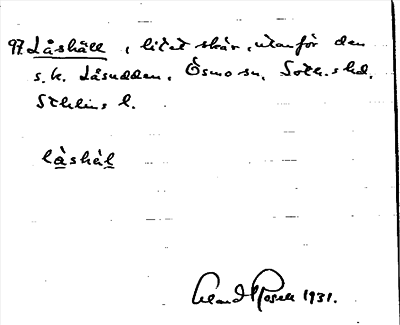 97. Låshäll, litet skär, utanför den
s.k. Låsudden, Ösmo sn, Soth.s hd,
Sthlms l.
lå̀shäl
Rosell 1931.